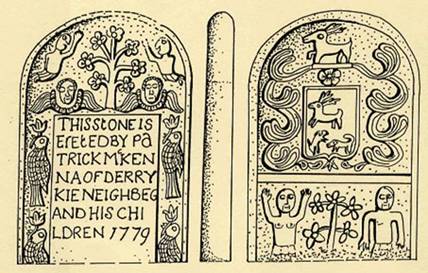 THIS STONE IS
ERETED BY PA
TRICK MᶜKEN
NA OF DERRY
KIE NEIGHBEG
AND HIS CHI
LDREN 1779